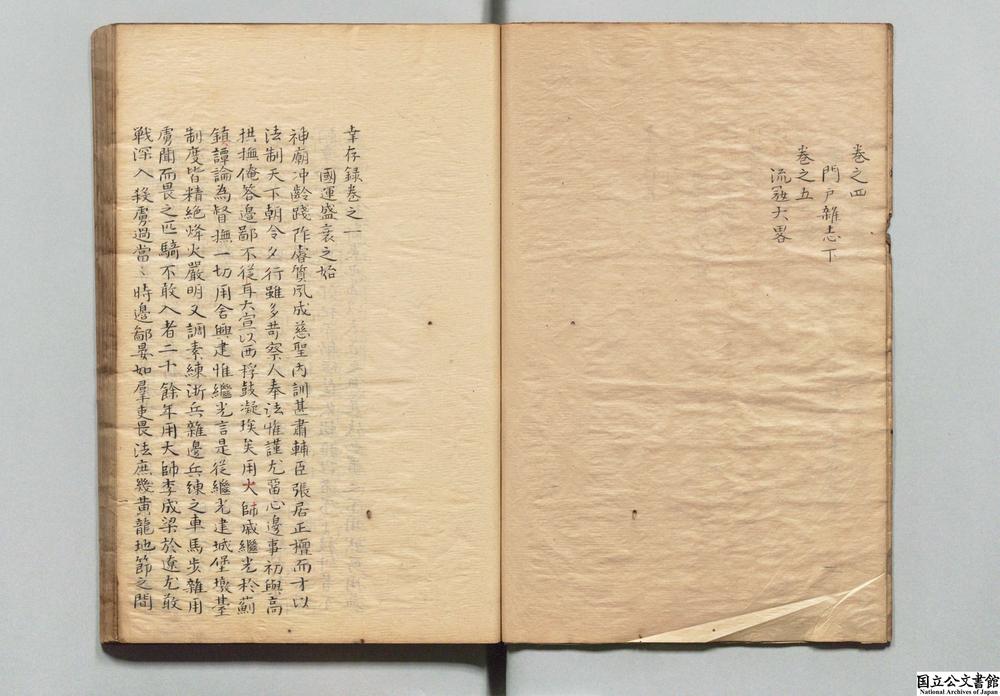 卷之四
門戶雜志下
卷之五
流寇大畧
幸存錄卷之一
國運盛衰之始
神廟冲齡踐阼睿質夙成慈聖內訓甚肅輔臣張居正擅而才以
法制天下朝令夕行雖多苛察人奉法惟謹尤畱心邊事初與高
拱撫俺答邊鄙不從耳大宣以西桴鼓凝埃矣用大師戚繼光於薊
鎮譚論為督撫一切用舍興建惟繼光言是從繼光建城堡墩臺
制度皆精絕烽火嚴明又調素練浙兵雜邊兵練之車馬步雜用
虜聞而畏之匹騎不敢入者二十餘年用大師李成梁於遼尤敢
戰深入殺虜過當〻時邊鄙晏如羣吏畏法庶幾黃龍地節之間
国立公文書館
National Archives of Japan